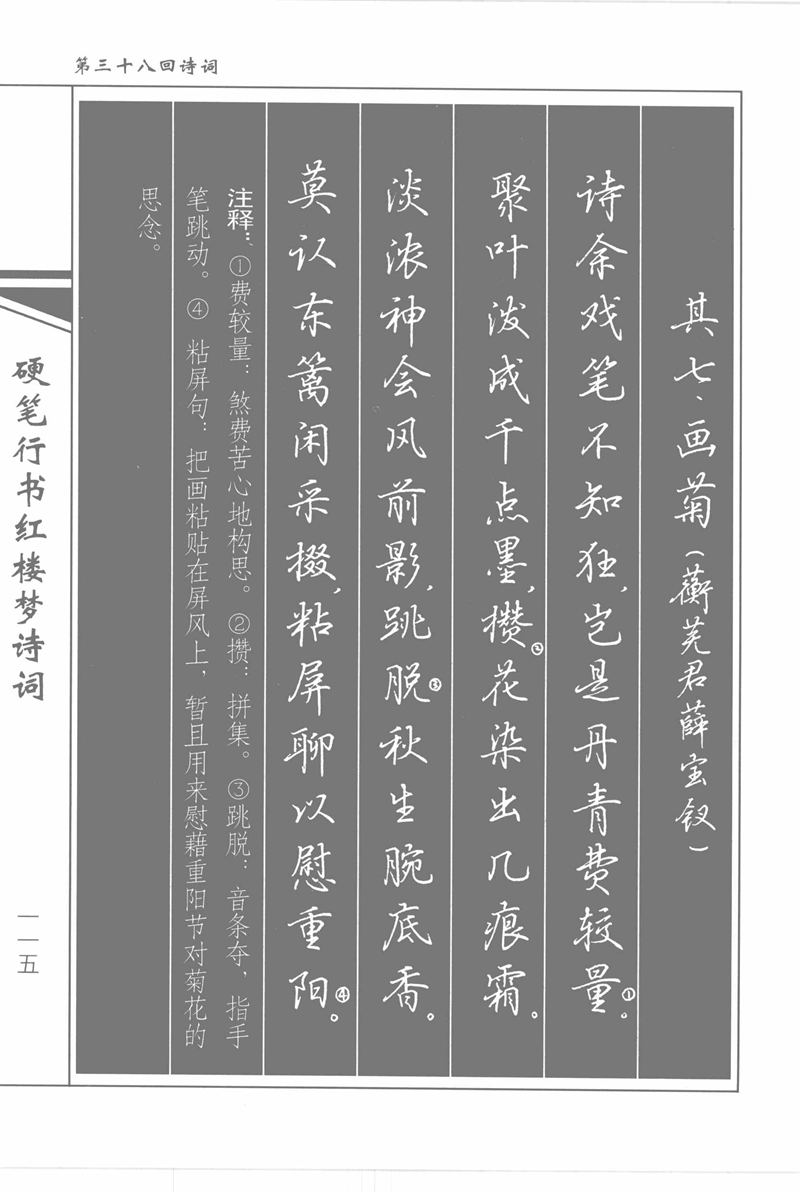 第三十八回诗词
其七、画菊（蘅芜君薛宝钗）
诗余戏笔不知狂，岂是丹青费较量①。
聚叶泼成千点墨，攒②花染出几痕霜。
淡浓神会风前影，跳脱③秋生腕底香。
莫认东篱闲采掇，粘屏聊以慰重阳④。
注释：①费较量：煞费苦心地构思。②攒：拼集。③跳脱：音条夺，指手
笔跳动。④ 粘屏句：把画粘贴在屏风上，暂且用来慰藉重阳节对菊花的
思念。
硬笔行书红楼梦诗词
一一五